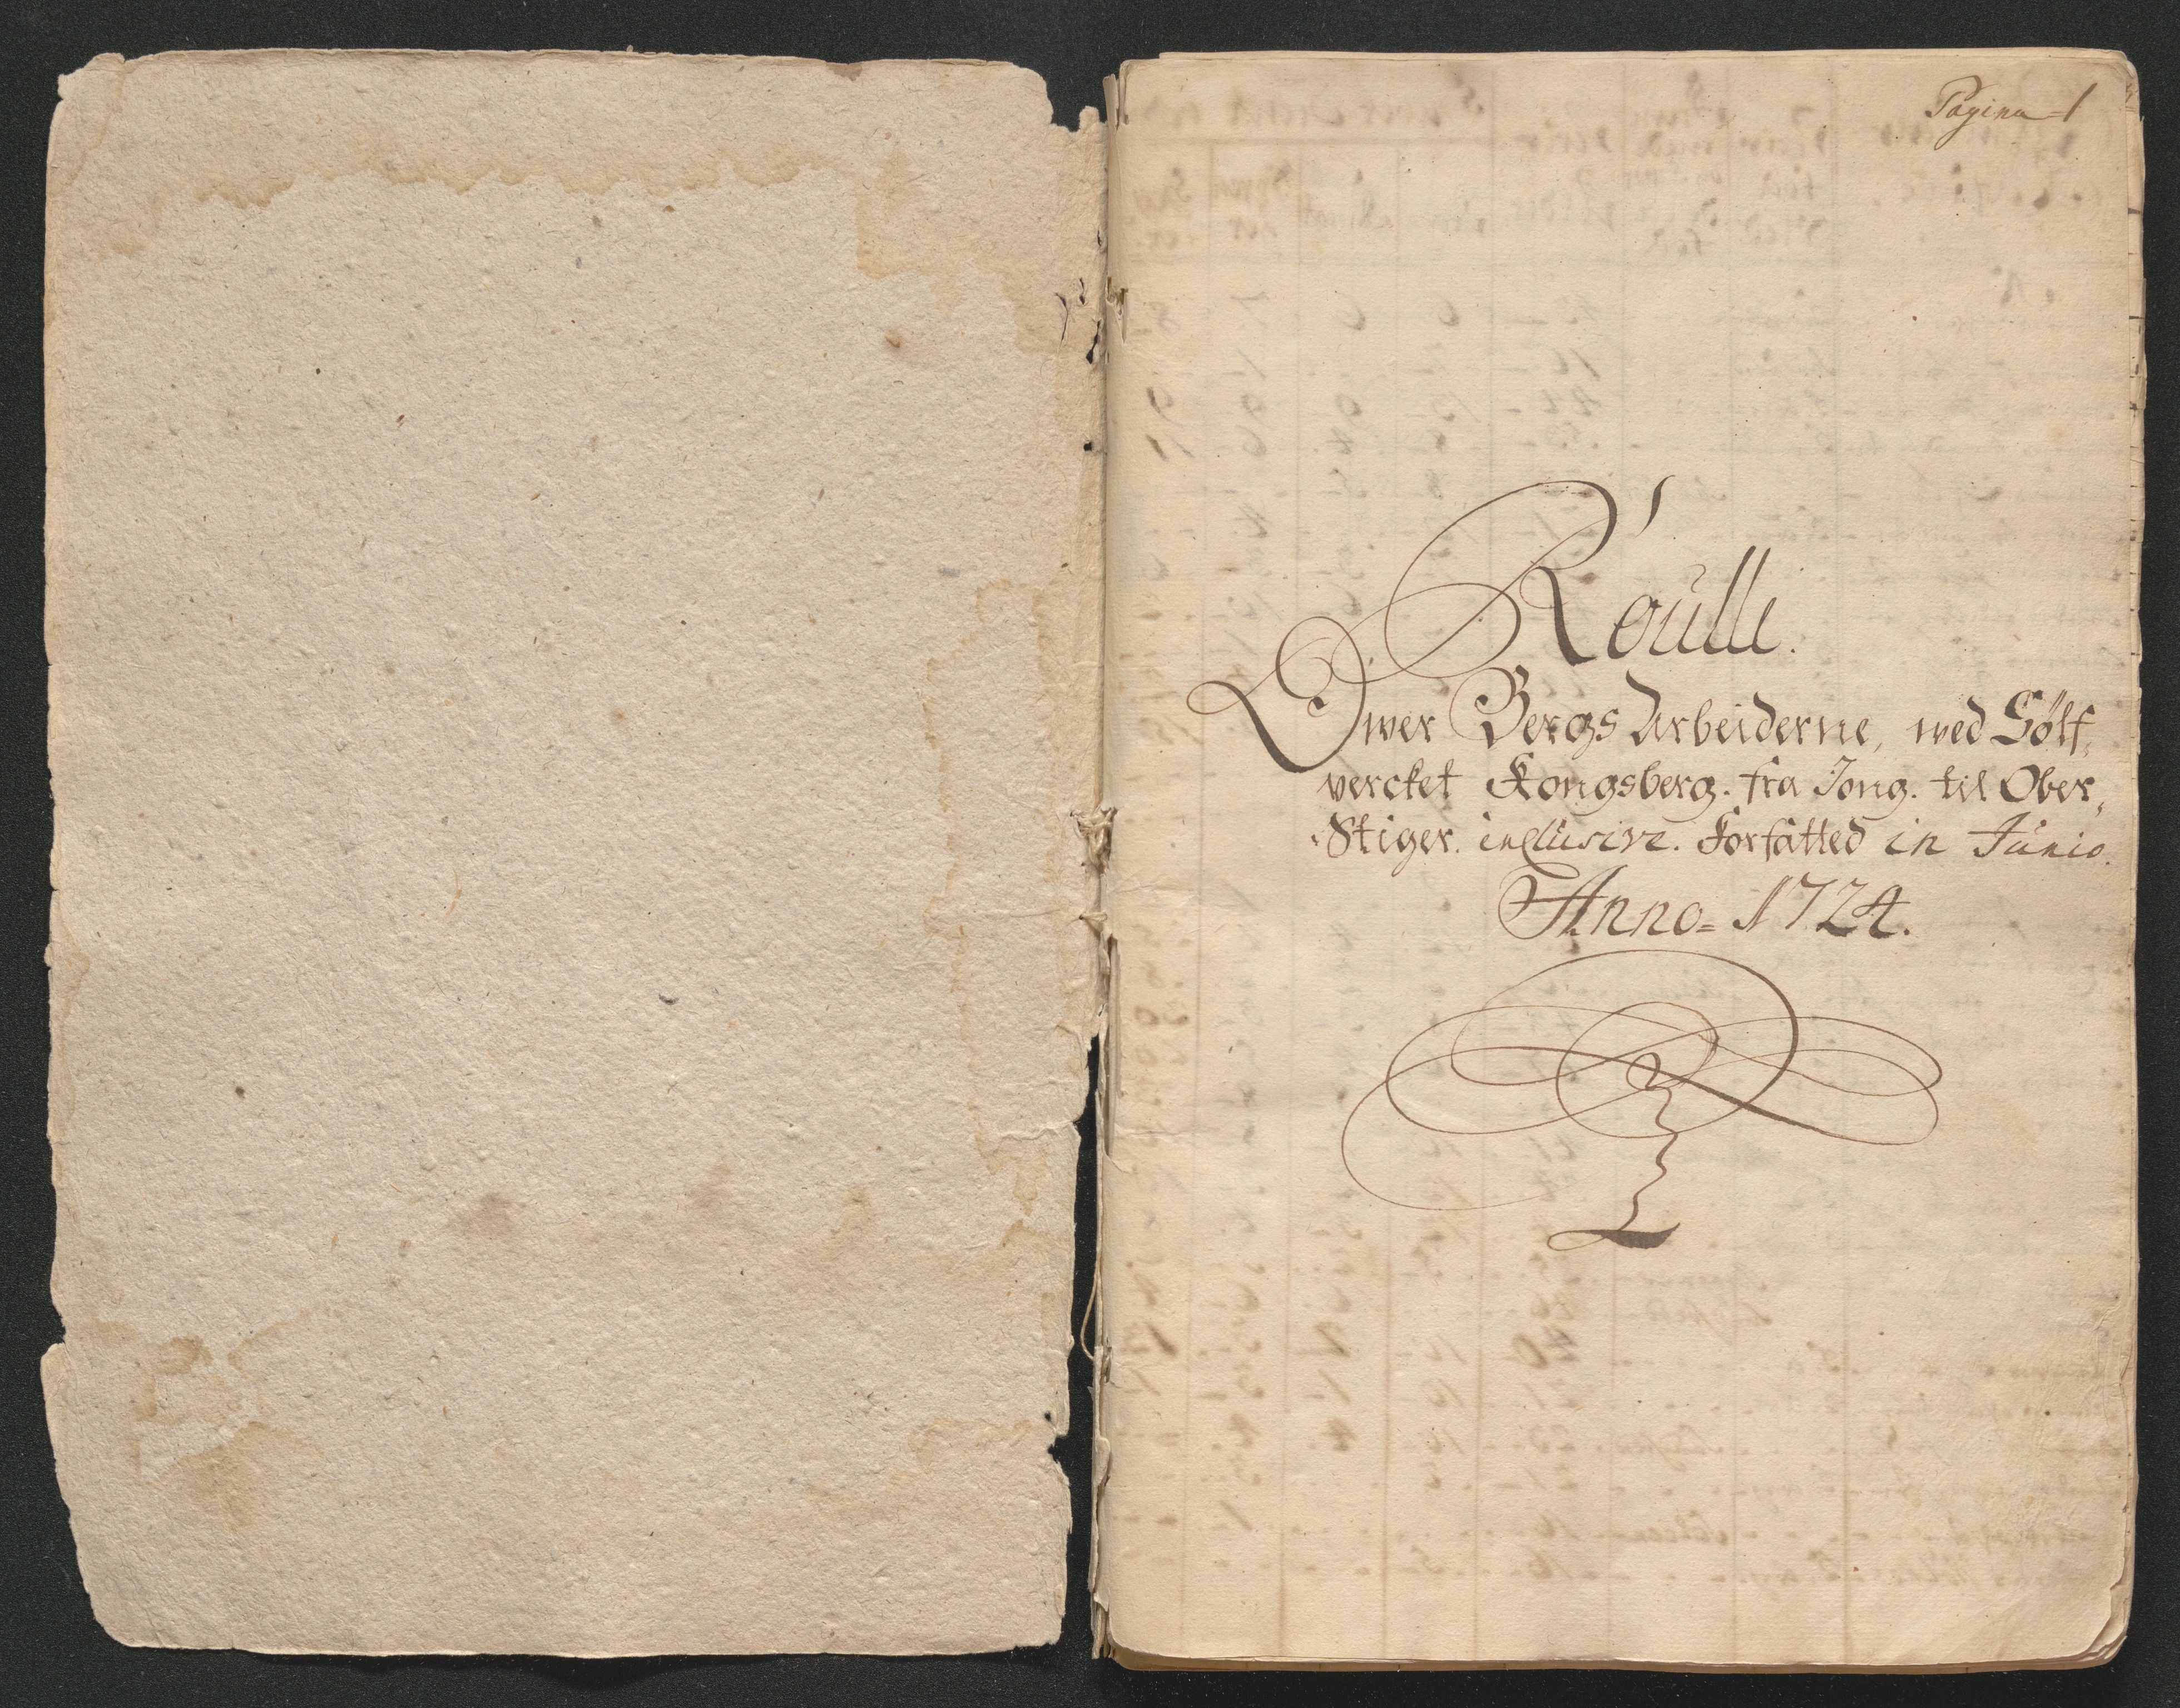 Pagina=1
Roulle.
Ower Bergs Arbeiderne, wed Sølf=
vercket Kongsberg. fra Jong. til Ober,
Stiger. inclusive. Forfatted in Junio.
Anno= 1724.